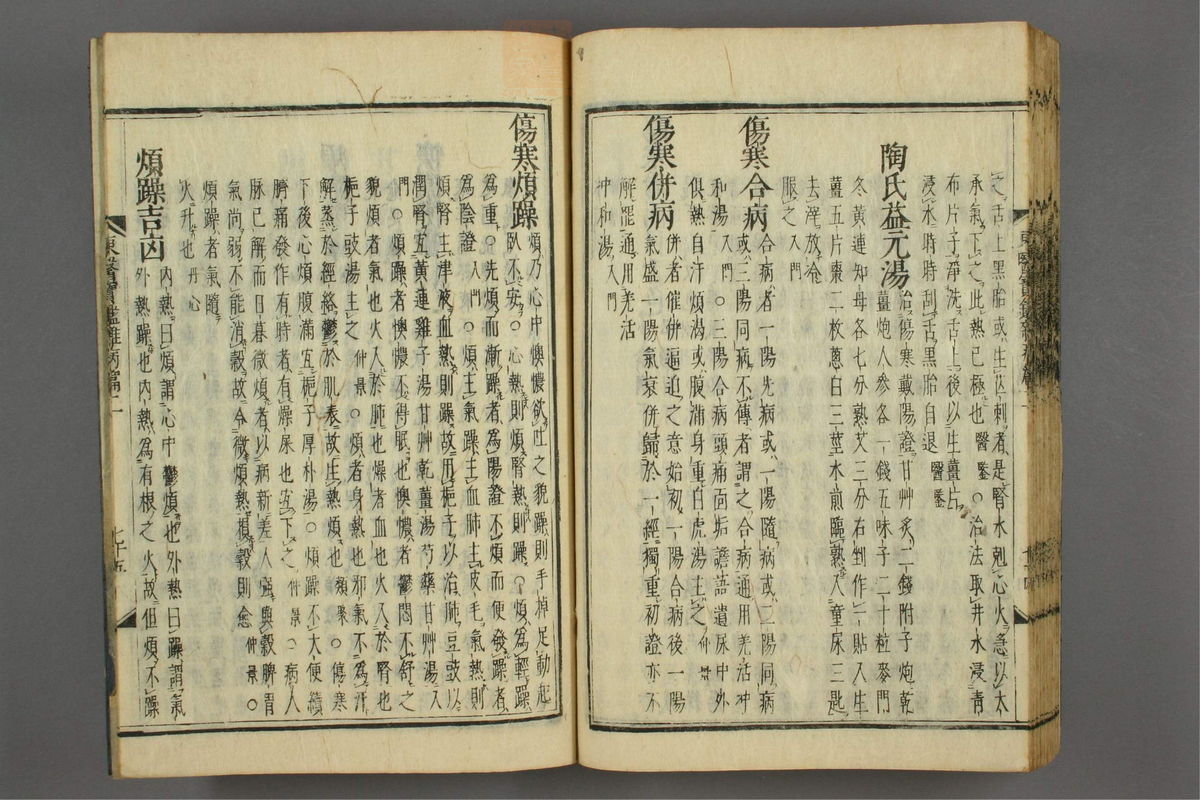 之舌上黑胎或生芒刺者是腎水剋心火急以大
承氣下之此熱已極也醫鑒○治法取井水浸靑
布片子淨洗舌上後以生薑片
浸水時時刮舌黑胎自退醫鑒
陶氏益元湯治傷寒戴陽證甘艸炙二錢附子炮乾
薑炮人參各一錢五味子二十粒麥門
冬黃連知母各七分熟艾三分右剉作一貼入生
薑五片棗二枚蔥白三莖水煎臨熟入童尿三匙
去滓放冷
服之入門
傷寒合病合病者一陽先病或一陽隨病或二陽同病
或三陽同病不傳者謂之合病通用羌活冲
和湯入門○三陽合病頭痛面垢譫語遺尿中外
俱熱自汗煩渴或腹滿身重白虎湯主之仲景
傷寒併病併者催併逼迫之意始初一陽合病後一陽
氣盛一陽氣衰併歸於一經獨重初證亦不
解罷通用羌活
冲和湯入門
傷寒煩躁煩乃心中懊憹欲吐之貌躁則手掉足動起
臥不安○心熱則煩腎熱則躁○煩爲輕躁
爲重○先煩而漸躁者爲陽證不煩而便發躁者
爲陰證入門○煩主氣躁主血肺主皮毛氣熱則
煩腎主津液血熱則躁故用梔子以治肺豆豉以
潤腎宜黃連雞子湯甘艸乾薑湯芍藥甘艸湯入
門○煩躁者懊憹不得眠也懊憹者鬱悶不舒之
貌煩者氣也火入於肺也燥者血也火入於腎也
梔子豉湯主之仲景○煩者身熱也邪氣不爲汗
解蒸於經絡鬱於肌表故生熱煩也類聚○傷寒
下後心煩腹滿宜梔子厚朴湯○煩躁不大便繞
臍痛發作有時者有燥屎也宜下之仲景○病人
脉已解而日暮微煩者以病新差人强與穀脾胃
氣尚弱不能消穀故令微煩熱損穀則愈仲景○
煩躁者氣隨
火升也丹心
煩躁吉凶內熱曰煩謂心中鬱煩也外熱曰躁謂氣
外熱躁也內熱爲有根之火故但煩不躁
東醫寶鑑雜病篇二
七十五